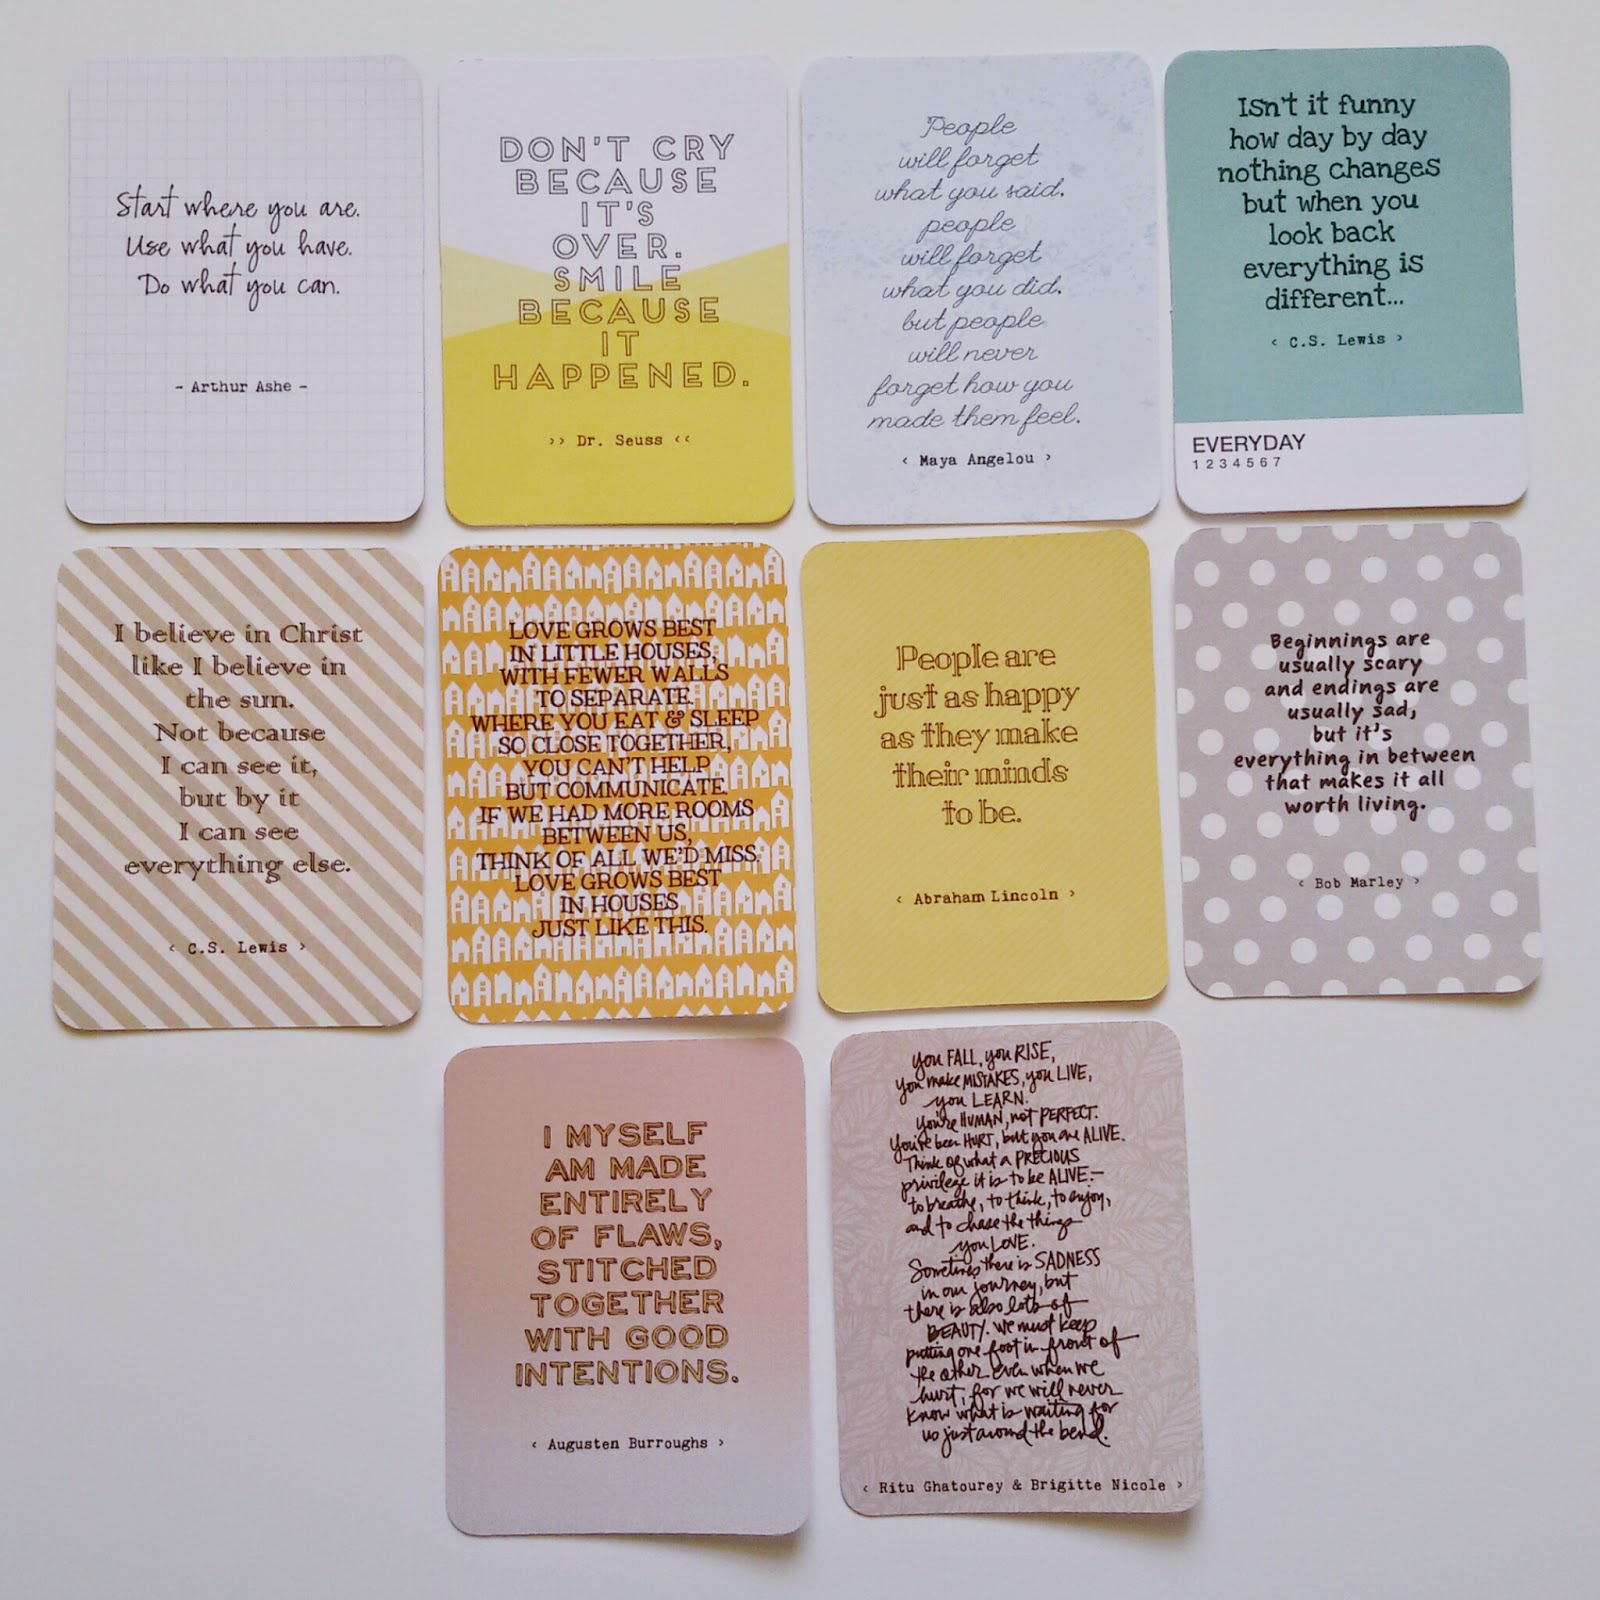 Start where you are.
Use what you have.
Do what you can.
- Arthur Ashe -
DON'T CRY
BECAUSE
IT'S
OVER.
SMILE
BECAUSE
IT
HAPPENED.
>> Dr. Seuss <<
People
will forget
what you said.
people
will forget
what you did.
but people
will never
forget how you
made them feel.
< Maya Angelou >
Isn't it funny
how day by day
nothing changes
but when you
look back
everything is
different...
< C.S. Lewis >
EVERYDAY
1 2 3 4 5 6 7
I believe in Christ
like I believe in
the sun.
Not because
I can see it,
but by it
I can see
everything else.
< C.S. Lewis >
LOVE GROWS BEST
IN LITTLE HOUSES,
WITH FEWER WALLS
TO SEPARATE.
WHERE YOU EAT & SLEEP
SO CLOSE TOGETHER,
YOU CAN'T HELP
BUT COMMUNICATE.
IF WE HAD MORE ROOMS
BETWEEN US,
THINK OF ALL WE'D MISS.
LOVE GROWS BEST
IN HOUSES
JUST LIKE THIS.
People are
just as happy
as they make
their minds
to be.
< Abraham Lincoln >
Beginnings are
usually scary
and endings are
usually sad,
but it's
everything in between
that makes it all
worth living.
< Bob Marley >
I MYSELF
AM MADE
ENTIRELY
OF FLAWS,
STITCHED
TOGETHER
WITH GOOD
INTENTIONS.
< Augusten Burroughs >
you FALL, you RISE,
you make MISTAKES, you LIVE,
you LEARN.
you're HUMAN, not PERFECT.
You've been HURT, but you are ALIVE.
Think of what a PRECIOUS
privilege it is to be ALIVE—
to breathe, to think, to enjoy,
and to chase the things
you LOVE.
Sometimes there is SADNESS
in our journey, but
there is also lots of
BEAUTY. we must keep
putting one foot in front of
the other even when we
hurt, for we will never
know what is waiting for
us just around the bend.
< Ritu Ghatourey & Brigitte Nicole >